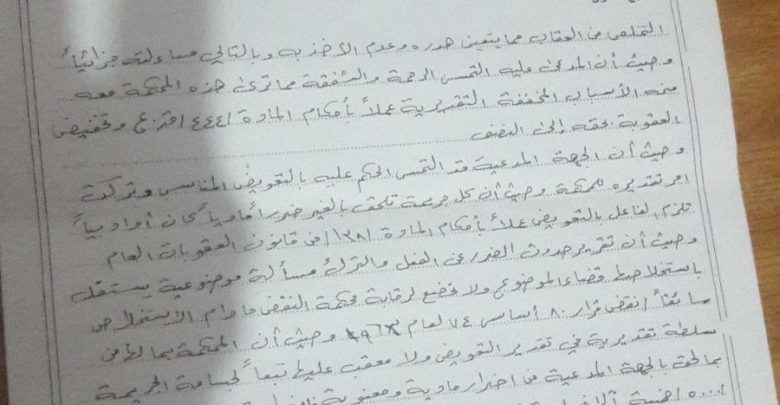 التخلص من العقاب مما يتعين هدره وعدم الأخذ به وبالتالي مساءلته جزائياً
وحيث أن المدعى عليه التمس الرحمة والشفقة مما ترى هذه المحكمة معه
منحه الأسباب المخففة التقديرية عملاً بأحكام المادة ٢٤٤ ق.ع وتخفيض
العقوبة بحقه إلى النصف
وحيث أن الجهة المدعية قد التمس الحكم عليه بالتعويض المناسب وتركت
امر تقديره للمحكمة وحيث أن كل جريمة تلحق بالغير ضرراً مادياً كان أو ادبياً
تلزم الفاعل بالتعويض عملاً بأحكام المادة ١٣٨ من قانون العقوبات العام
وحيث أن تقرير حدوث الضرر عن الفعل والترك مسألة موضوعية يستقل
باستخلاصها قضاء الموضوع ولا تخضع لرقابة محكمة النقض ما دام الاستخلاص
سائغاً نقض قرار ٨٠ أساسي ٧٤ لعام وحيث أن المحكمة بما لها من
سلطة تقديرية في تقدير التعويض ولا معقب عليها تبعاً لجسامة الجريمة
بما لحق بالجهة المدعية من اضرار مادية ومعنوية